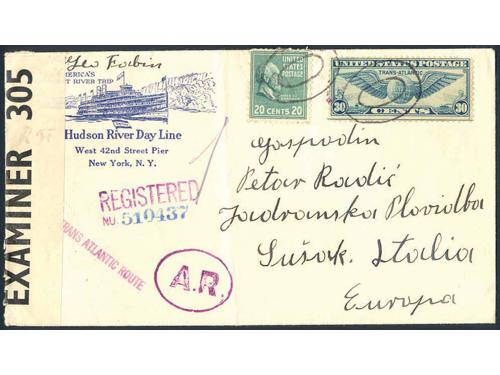 EXAMINER 305
Geo Fabin
AMERICA'S
T RIVER TRIP
Hudson River Day Line
West 42nd Street Pier
New York, N. Y.
REGISTERED
NO. 510437
TRANS ATLANTIC ROUTE
A.R.
UNITED STATES
POSTAGE
20 CENTS 20
UNITED STATES POSTAGE
TRANS-ATLANTIC
30 CENTS 30
Gospodin
Petar Radić
Jadranska Plovidba
Sušak. Italia
Europa